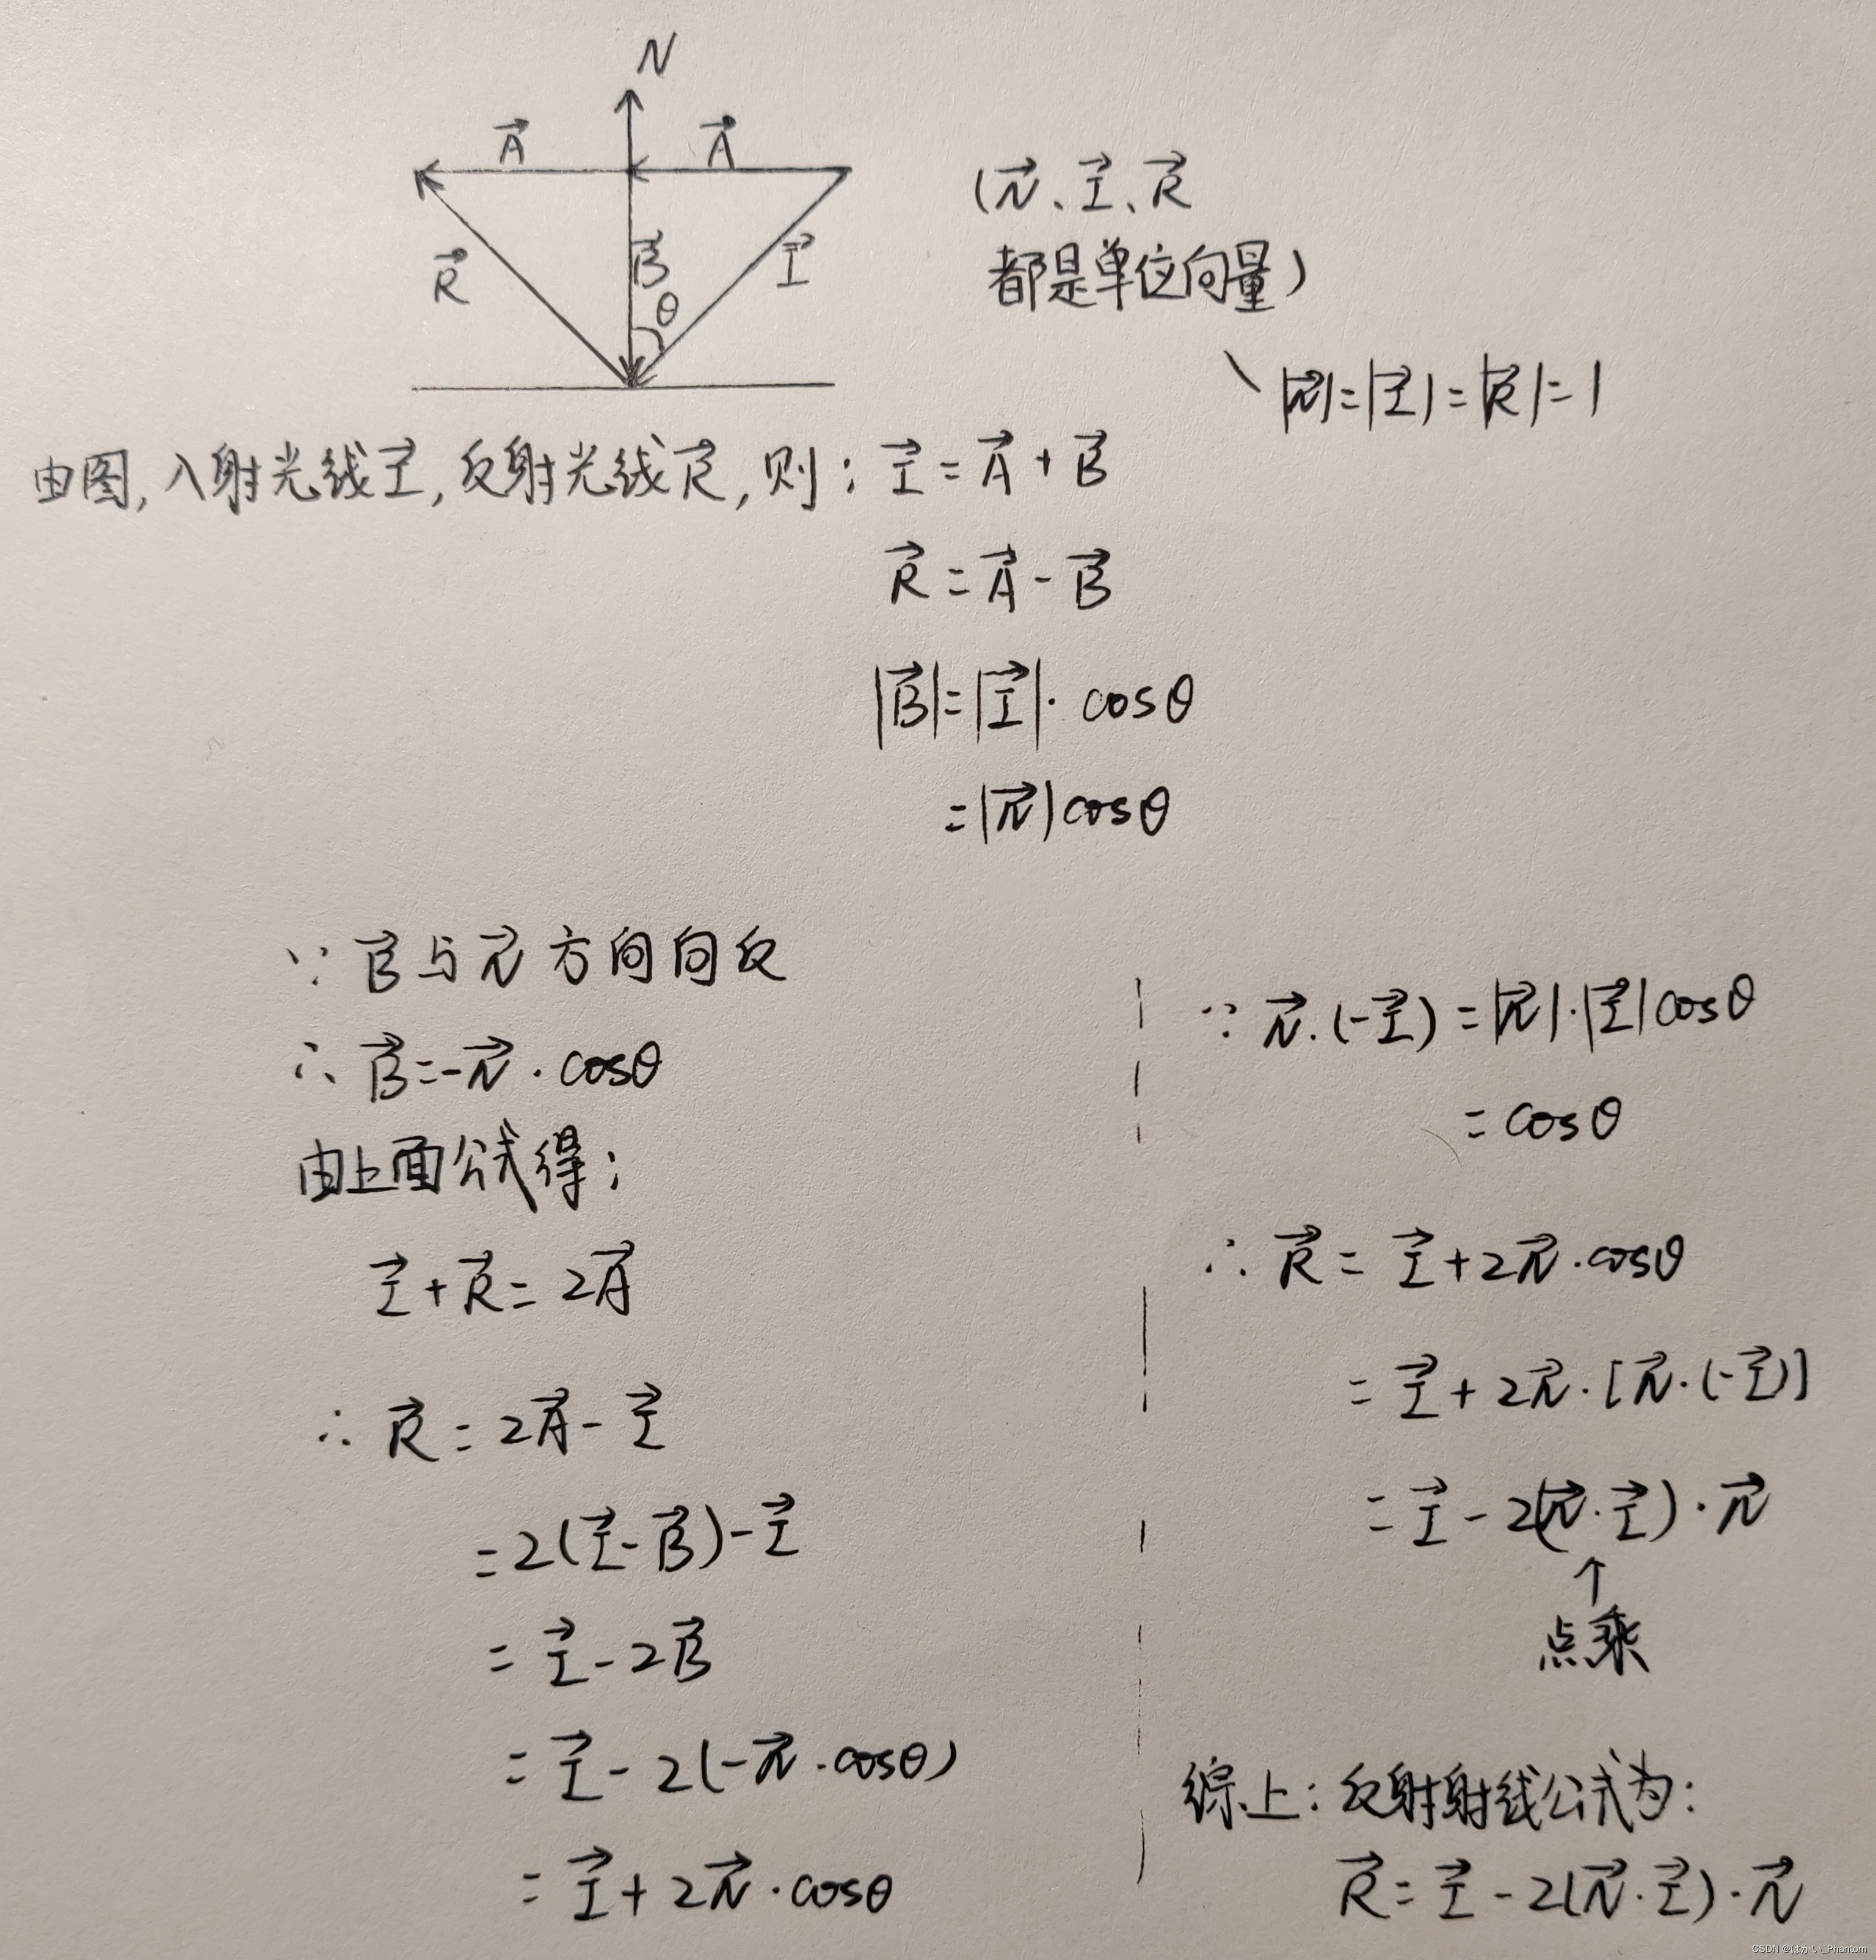 N
A⃗ A⃗
(N⃗、I⃗、R⃗
R⃗ B⃗ I⃗
都是单位向量)
θ
|N⃗|=|I⃗|=|R⃗|=1
由图,入射光线I⃗,反射光线R⃗,则: I⃗=A⃗+B⃗
R⃗=A⃗-B⃗
|B⃗|=|I⃗|· cosθ
=|N⃗|cosθ
∵ B⃗与N⃗方向向反
∴ B⃗=-N⃗·cosθ
由上面公式得:
I⃗+R⃗=2A⃗
∴ R⃗=2A⃗-I⃗
=2(I⃗-B⃗)-I⃗
=I⃗-2B⃗
=I⃗-2(-N⃗·cosθ)
=I⃗+2N⃗·cosθ
∵ N⃗·(-I⃗)=|N⃗|·|I⃗|cosθ
=cosθ
∴ R⃗=I⃗+2N⃗·cosθ
=I⃗+2N⃗·[N⃗·(-I⃗)]
=I⃗-2(N⃗·I⃗)·N⃗
↑
点乘
综上:反射射线公式为:
R⃗=I⃗-2(N⃗·I⃗)·N⃗
CSDN @はかい_Phantom